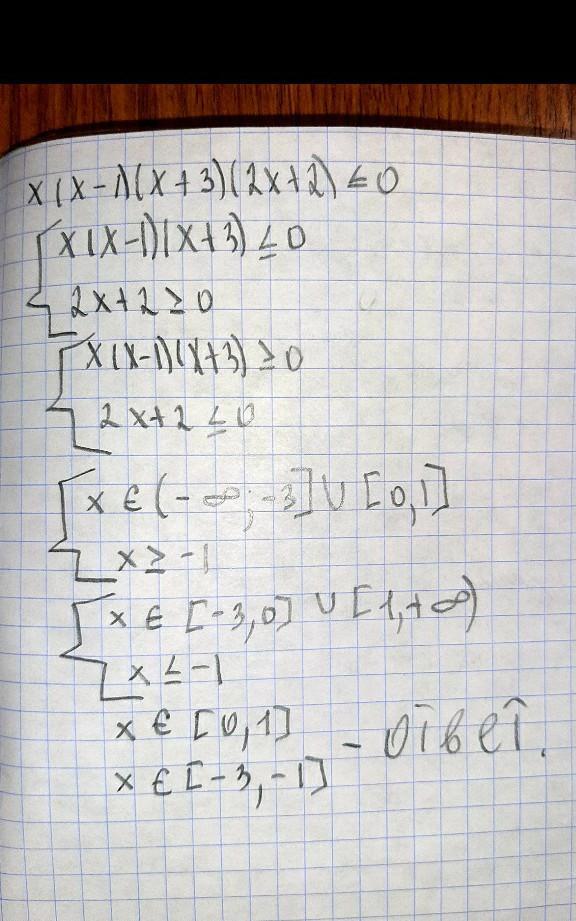 x(x-1)(x+3)(2x+2) ≤ 0
x(x-1)(x+3) ≤ 0
2x+2 ≥ 0
x(x-1)(x+3) ≥ 0
2x+2 ≤ 0
x ∈ (-∞; -3] ∪ [0,1]
x ≥ -1
x ∈ [-3,0] ∪ [1,+∞)
x ≤ -1
x ∈ [0,1]
x ∈ [-3,-1] - ответ.